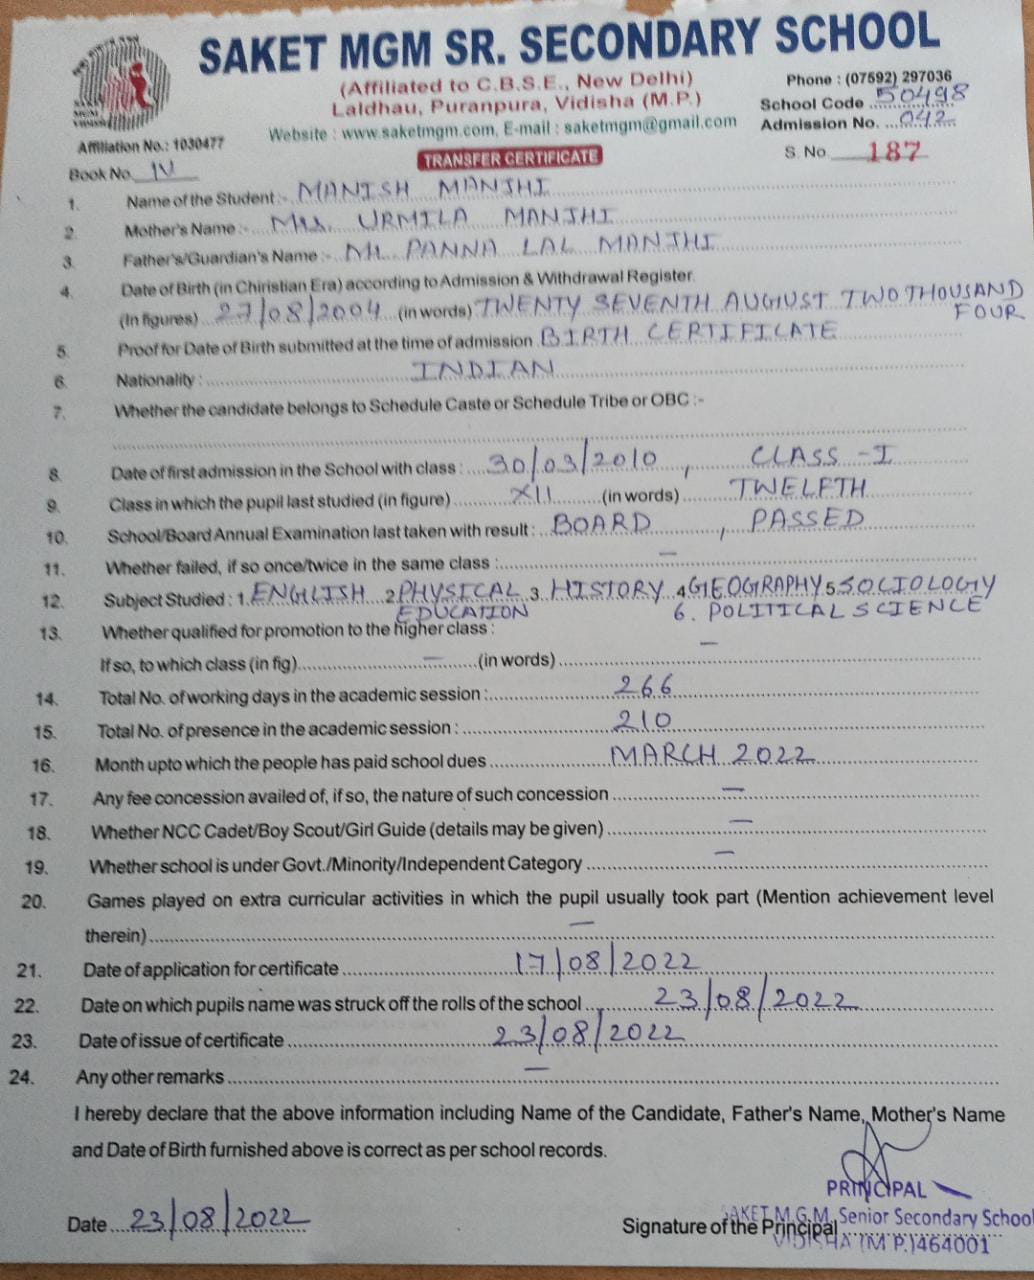 SAKET MGM SR. SECONDARY SCHOOL
(Affiliated to C.B.S.E., New Delhi)
Laldhau, Puranpura, Vidisha (M.P.)
Website : www.saketmgm.com, E-mail : saketmgm@gmail.com
Phone : (07592) 297036
School Code 50498
Admission No. 042
Affiliation No.: 1030477
TRANSFER CERTIFICATE
S. No. 187
Book No. IV
1. Name of the Student :- MANISH MANJHI
2. Mother's Name :- Mrs. URMILA MANJHI
3. Father's/Guardian's Name :- Mr. PANNA LAL MANJHI
4. Date of Birth (in Chiristian Era) according to Admission & Withdrawal Register.
(In figures) 27/08/2004 (in words) TWENTY SEVENTH AUGUST TWO THOUSAND
FOUR
5. Proof for Date of Birth submitted at the time of admission BIRTH CERTIFICATE
6. Nationality : INDIAN
7. Whether the candidate belongs to Schedule Caste or Schedule Tribe or OBC :-
8. Date of first admission in the School with class : 30/03/2010 , CLASS - I
9. Class in which the pupil last studied (in figure) XII (in words) TWELFTH
10. School/Board Annual Examination last taken with result : BOARD , PASSED
11. Whether failed, if so once/twice in the same class : —
12. Subject Studied : 1. ENGLISH 2 PHYSICAL 3. HISTORY 4 GEOGRAPHY 5 SOCIOLOGY
EDUCATION 6. POLITICAL SCIENCE
13. Whether qualified for promotion to the higher class : —
If so, to which class (in fig) — (in words)
14. Total No. of working days in the academic session : 266
15. Total No. of presence in the academic session : 210
16. Month upto which the people has paid school dues MARCH 2022
17. Any fee concession availed of, if so, the nature of such concession —
18. Whether NCC Cadet/Boy Scout/Girl Guide (details may be given) —
19. Whether school is under Govt./Minority/Independent Category —
20. Games played on extra curricular activities in which the pupil usually took part (Mention achievement level
therein) —
21. Date of application for certificate 17/08/2022
22. Date on which pupils name was struck off the rolls of the school 23/08/2022
23. Date of issue of certificate 23/08/2022
24. Any other remarks —
I hereby declare that the above information including Name of the Candidate, Father's Name, Mother's Name
and Date of Birth furnished above is correct as per school records.
PRINCIPAL
SAKET M.G.M. Senior Secondary School
Date 23/08/2022 Signature of the Principal
VIDISHA (M.P.) 464001